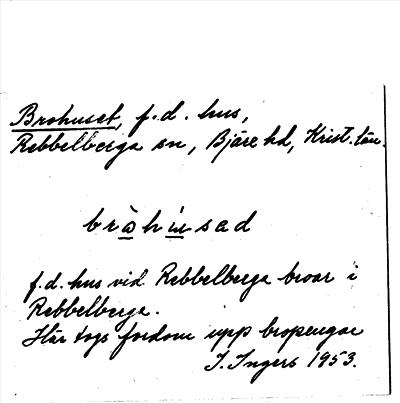 Brohuset, f.d. hus,
Rebbelberga sn, Bjäre hd, Krist. län.
bràhúsad
f.d. hus vid Rebbelberga broar i
Rebbelberga.
Här togs fordom upp bropengar
I. Ingers 1953.